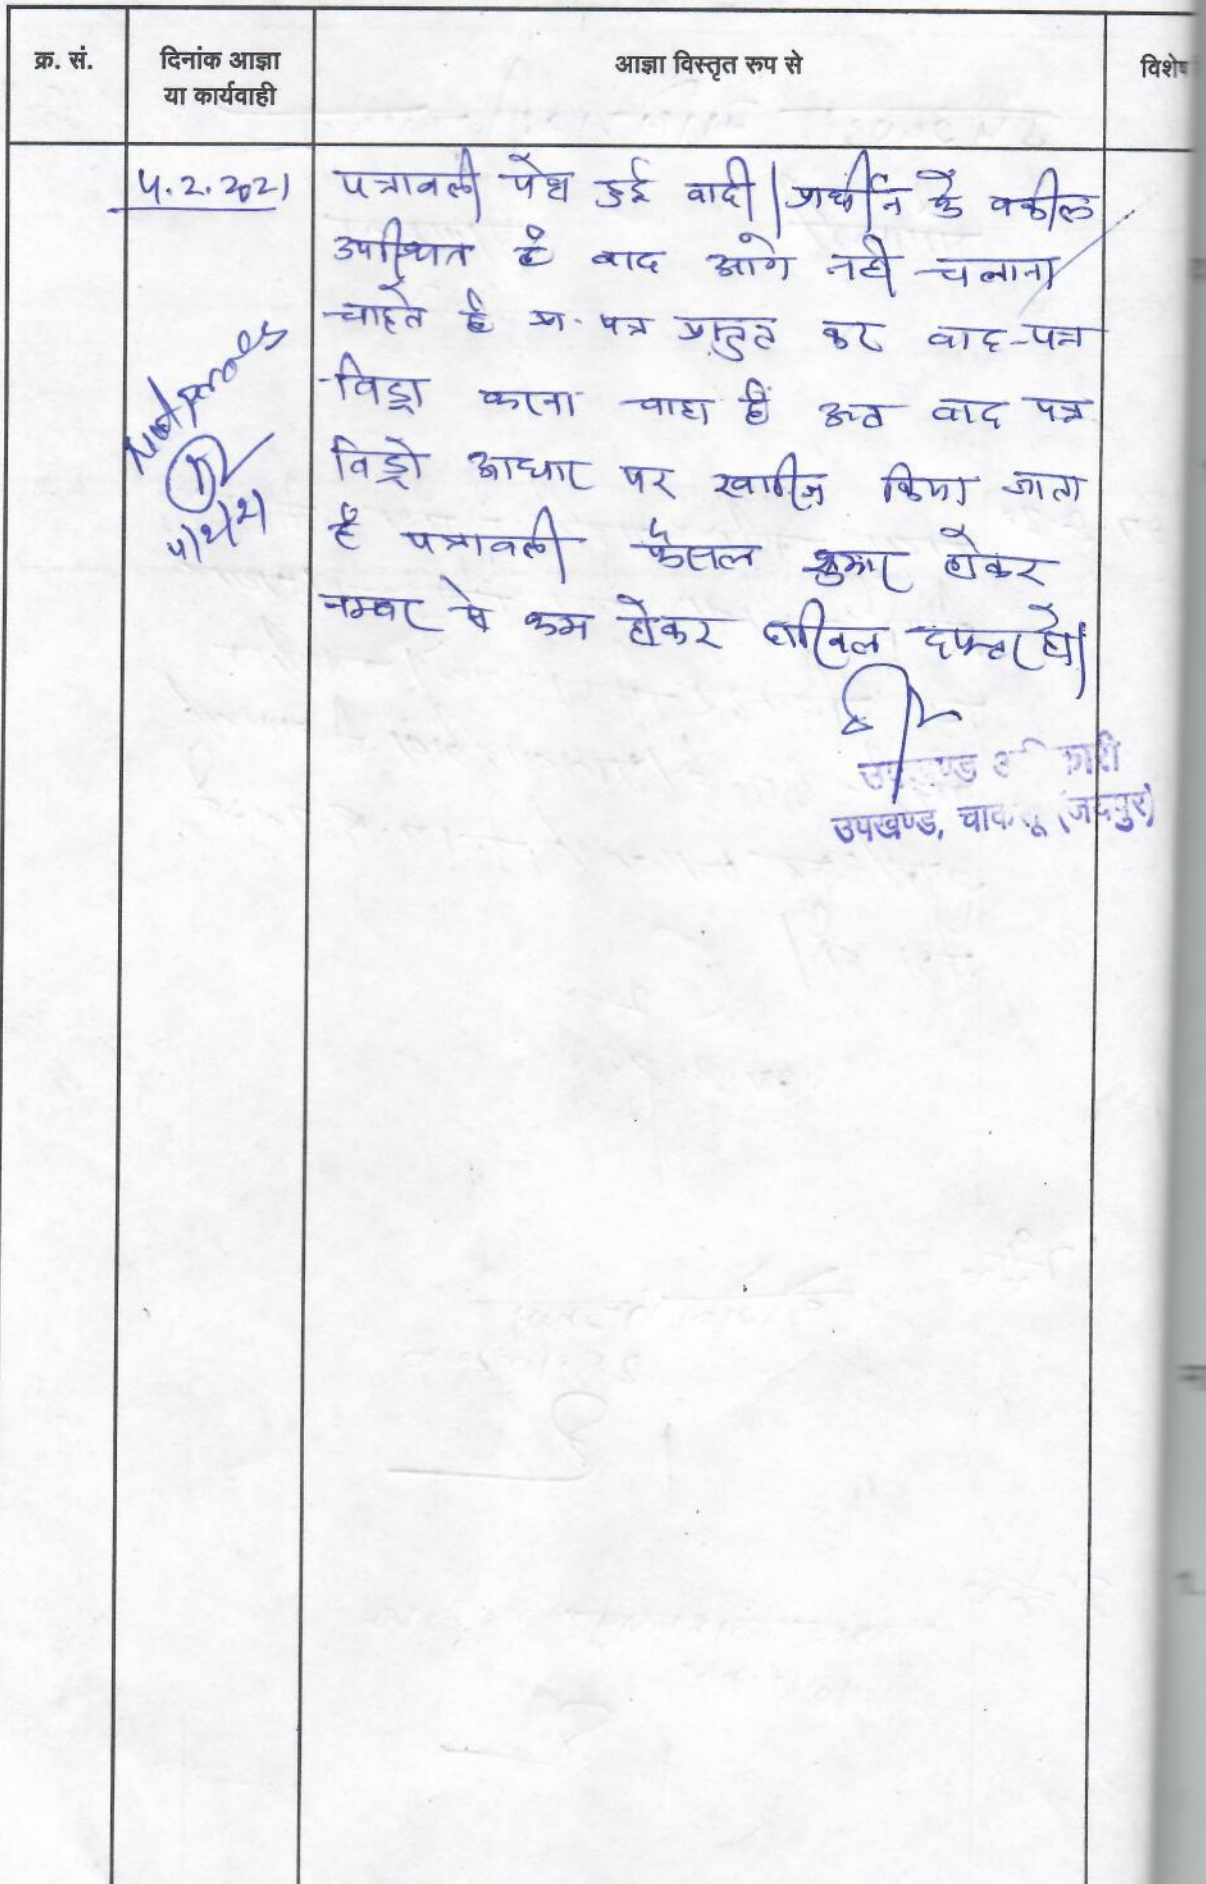 क्र. सं.
दिनांक आज्ञा
या कार्यवाही
आज्ञा विस्तृत रुप से
विशेष
4.2.2021
पत्रावली पेश हुई वादी / प्रार्थीन के वकील
उपस्थित है वाद आगे नही चलाना
चाहते है प्रा. पत्र प्रस्तुत कर वाद-पत्र
विड्रा करना चाहा है अत वाद पत्र
विड्रो आधार पर खारीज किया जाता
है पत्रावली फैसल शुमार होकर
नम्बर से कम होकर दाखिल दफ्तर हो।
Not press
4/2/21
उपखण्ड अधिकारी
उपखण्ड, चाकसू (जयपुर)